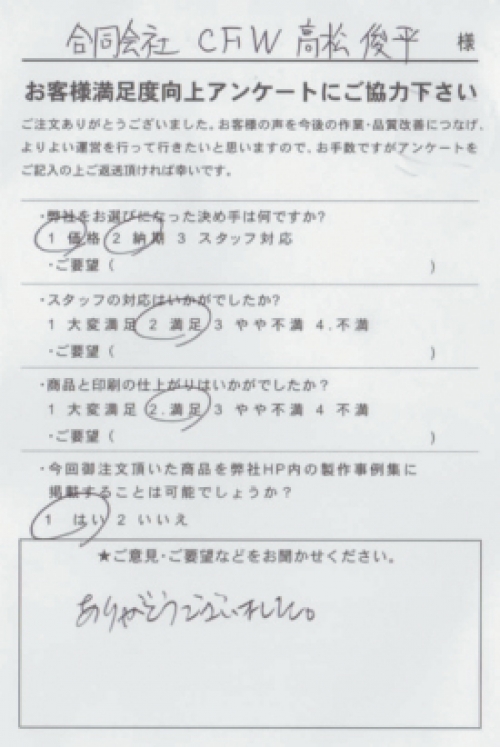 合同会社 CFW 高松 俊平 様
お客様満足度向上アンケートにご協力下さい
ご注文ありがとうございました。お客様の声を今後の作業・品質改善につなげ、
よりよい運営を行って行きたいと思いますので、お手数ですがアンケートを
ご記入の上ご返送頂ければ幸いです。
・弊社をお選びになった決め手は何ですか?
1 価格 2 納期 3 スタッフ対応
・ご要望( )
・スタッフの対応はいかがでしたか?
1 大変満足 2 満足 3 やや不満 4.不満
・ご要望( )
・商品と印刷の仕上がりはいかがでしたか?
1 大変満足 2.満足 3 やや不満 4 不満
・ご要望( )
・今回御注文頂いた商品を弊社HP内の製作事例集に
掲載することは可能でしょうか?
1 はい 2 いいえ
★ご意見・ご要望などをお聞かせください。
ありがとうございました。